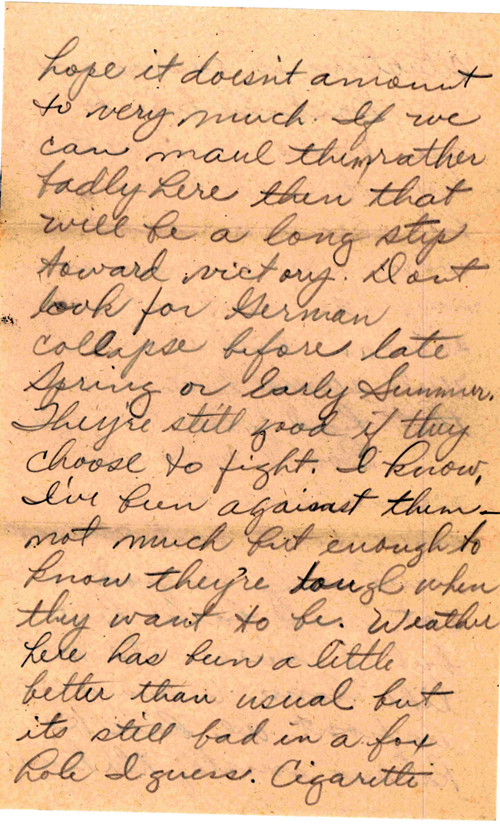 hope it doesn't amount
to very much. If we
can maul them rather
badly here then that
will be a long step
toward victory. Dont
look for German
collapse before late
Spring or Early Summer.
They're still good if they
choose to fight. I know,
I've been against them—
not much but enough to
know they're tough when
they want to be. Weather
here has been a little
better than usual but
its still bad in a fox
hole I guess. Cigarette